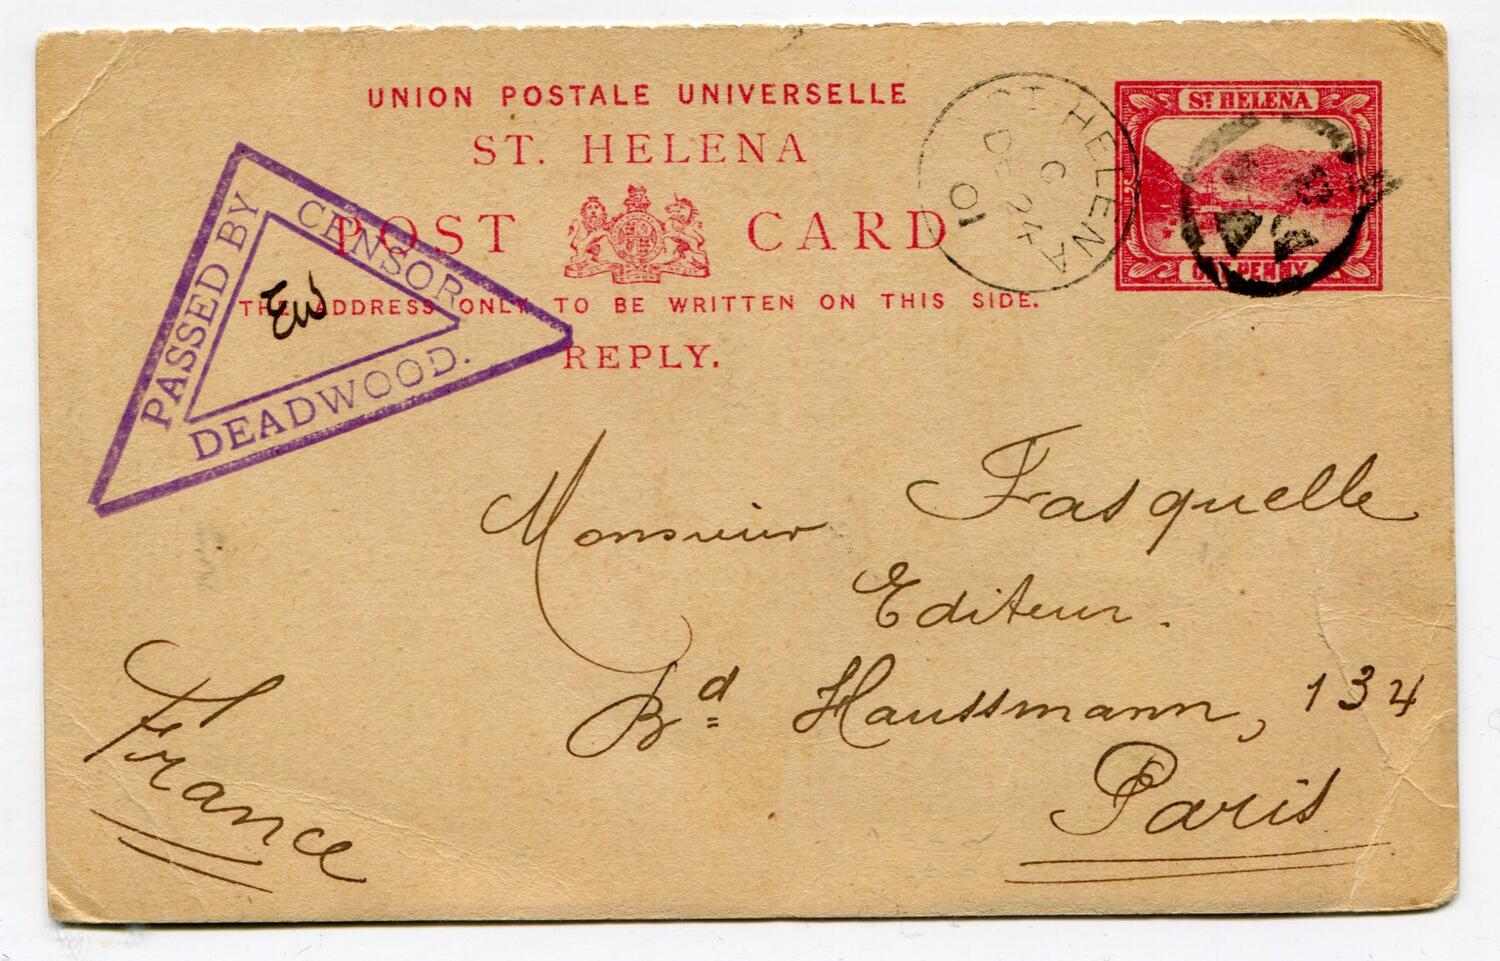 UNION POSTALE UNIVERSELLE
ST. HELENA
POST CARD
THE ADDRESS ONLY TO BE WRITTEN ON THIS SIDE.
REPLY.
PASSED BY
CENSOR
DEADWOOD.
EW
ST. HELENA
G
DE 24
01
ST HELENA
ONE PENNY
Monsieur Fasquelle
Editeur.
Bd Haussmann, 134
Paris
France